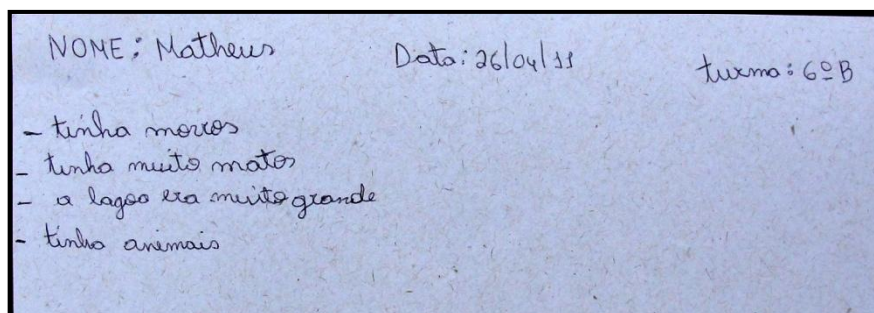 NOME: Matheus Data: 26/04/11 turma: 6º B
- tinha morros
- tinha muito matos
- a lagoa era muito grande
- tinha animais